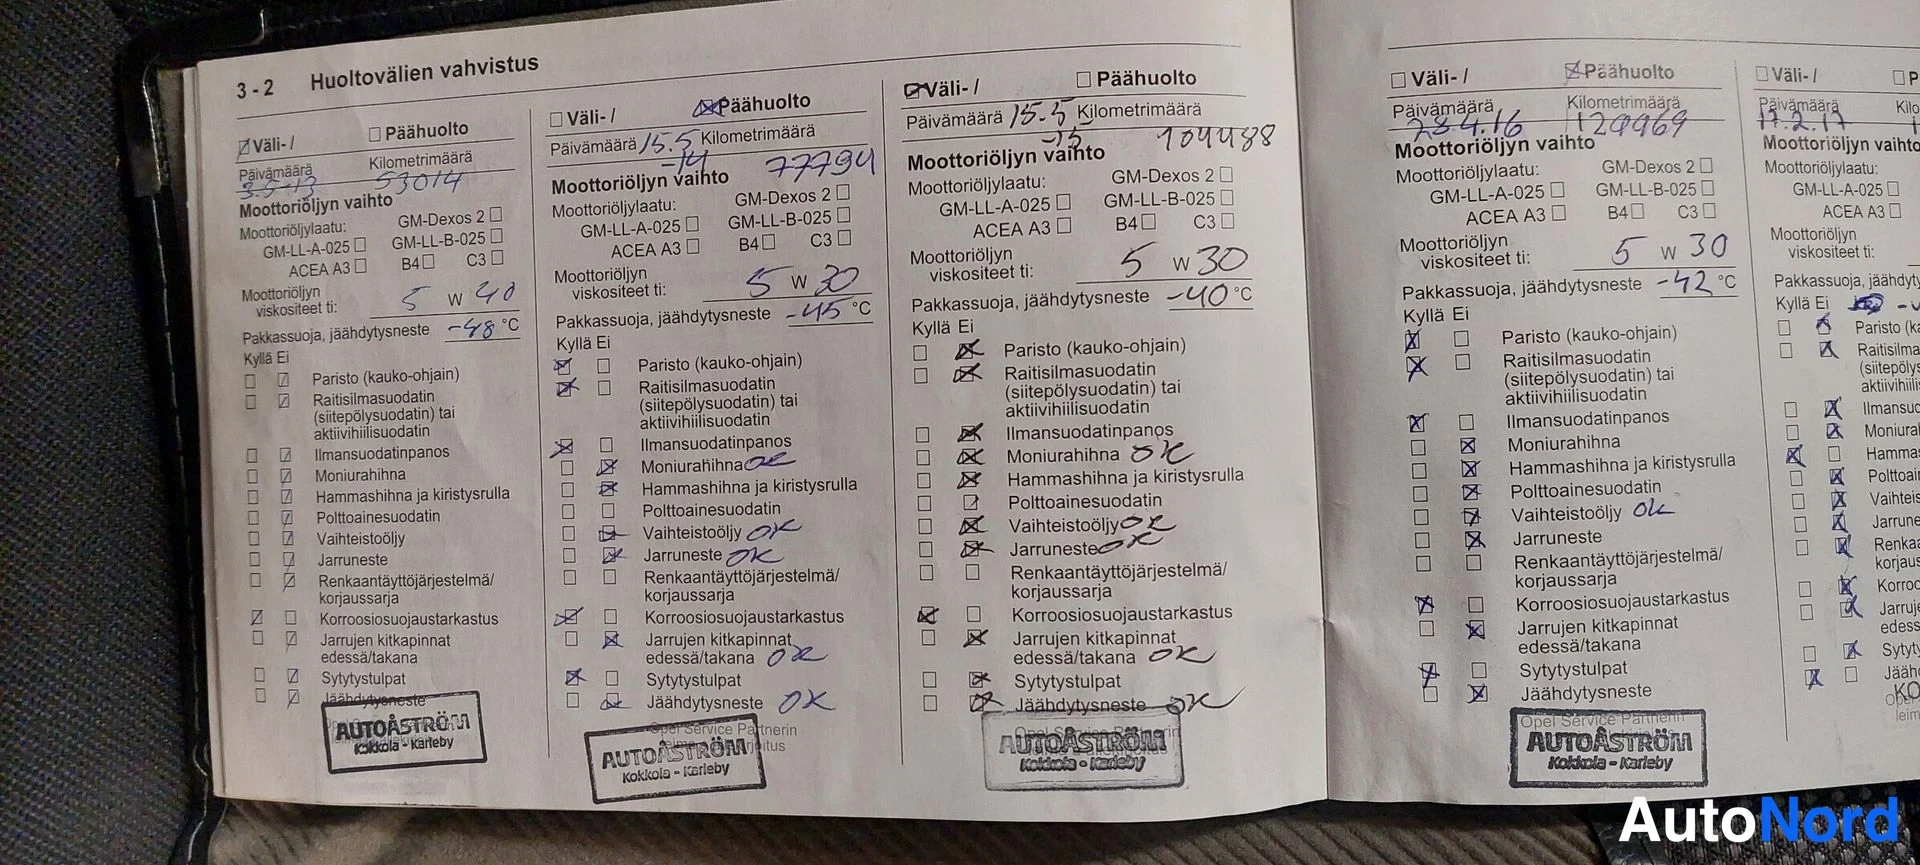 3 - 2 Huoltovälien vahvistus
Väli- / Päähuolto
Päivämäärä Kilometrimäärä
3.5-13 53014
Moottoriöljyn vaihto
Moottoriöljylaatu: GM-Dexos 2
GM-LL-A-025 GM-LL-B-025
ACEA A3 B4 C3
Moottoriöljyn
viskositeet ti: 5 W 40
Pakkassuoja, jäähdytysneste -48 °C
Kyllä Ei
Paristo (kauko-ohjain)
Raitisilmasuodatin
(siitepölysuodatin) tai
aktiivihiilisuodatin
Ilmansuodatinpanos
Moniurahihna
Hammashihna ja kiristysrulla
Polttoainesuodatin
Vaihteistoöljy
Jarruneste
Renkaantäyttöjärjestelmä/
korjaussarja
Korroosiosuojaustarkastus
Jarrujen kitkapinnat
edessä/takana
Sytytystulpat
Jäähdytysneste
AUTOÅSTRÖM
Kokkola - Karleby
Väli- / Päähuolto
Päivämäärä 15.5 Kilometrimäärä
-14 77794
Moottoriöljyn vaihto
Moottoriöljylaatu: GM-Dexos 2
GM-LL-A-025 GM-LL-B-025
ACEA A3 B4 C3
Moottoriöljyn
viskositeet ti: 5 W 30
Pakkassuoja, jäähdytysneste -45 °C
Kyllä Ei
Paristo (kauko-ohjain)
Raitisilmasuodatin
(siitepölysuodatin) tai
aktiivihiilisuodatin
Ilmansuodatinpanos
Moniurahihna OK
Hammashihna ja kiristysrulla
Polttoainesuodatin
Vaihteistoöljy OK
Jarruneste OK
Renkaantäyttöjärjestelmä/
korjaussarja
Korroosiosuojaustarkastus
Jarrujen kitkapinnat
edessä/takana OK
Sytytystulpat
Jäähdytysneste OK
Opel Service Partnerin
AUTOÅSTRÖM
Kokkola - Karleby
Väli- / Päähuolto
Päivämäärä 15.5 Kilometrimäärä
-15 104488
Moottoriöljyn vaihto
Moottoriöljylaatu: GM-Dexos 2
GM-LL-A-025 GM-LL-B-025
ACEA A3 B4 C3
Moottoriöljyn
viskositeet ti: 5 W 30
Pakkassuoja, jäähdytysneste -40 °C
Kyllä Ei
Paristo (kauko-ohjain)
Raitisilmasuodatin
(siitepölysuodatin) tai
aktiivihiilisuodatin
Ilmansuodatinpanos
Moniurahihna OK
Hammashihna ja kiristysrulla
Polttoainesuodatin
Vaihteistoöljy OK
Jarruneste OK
Renkaantäyttöjärjestelmä/
korjaussarja
Korroosiosuojaustarkastus
Jarrujen kitkapinnat
edessä/takana OK
Sytytystulpat
Jäähdytysneste OK
AUTOÅSTRÖM
Kokkola - Karleby
Väli- / Päähuolto
Päivämäärä Kilometrimäärä
28.4.16 129969
Moottoriöljyn vaihto
Moottoriöljylaatu: GM-Dexos 2
GM-LL-A-025 GM-LL-B-025
ACEA A3 B4 C3
Moottoriöljyn
viskositeet ti: 5 W 30
Pakkassuoja, jäähdytysneste -42 °C
Kyllä Ei
Paristo (kauko-ohjain)
Raitisilmasuodatin
(siitepölysuodatin) tai
aktiivihiilisuodatin
Ilmansuodatinpanos
Moniurahihna
Hammashihna ja kiristysrulla
Polttoainesuodatin
Vaihteistoöljy ok
Jarruneste
Renkaantäyttöjärjestelmä/
korjaussarja
Korroosiosuojaustarkastus
Jarrujen kitkapinnat
edessä/takana
Sytytystulpat
Jäähdytysneste
Opel Service Partnerin
AUTOÅSTRÖM
Kokkola - Karleby
Väli- / P
Päivämäärä Kilo
17.2.17
Moottoriöljyn vaihto
Moottoriöljylaatu:
GM-LL-A-025
ACEA A3
Moottoriöljyn
viskositeet ti:
Pakkassuoja, jäähdyty
Kyllä Ei
Paristo (ka
Raitisilmas
(siitepölys
aktiivihiilis
Ilmansuo
Moniurah
Hammas
Polttoain
Vaihteis
Jarrune
Renka
korjaus
Korroo
Jarruje
edess
Sytyty
Jäähd
AutoNord